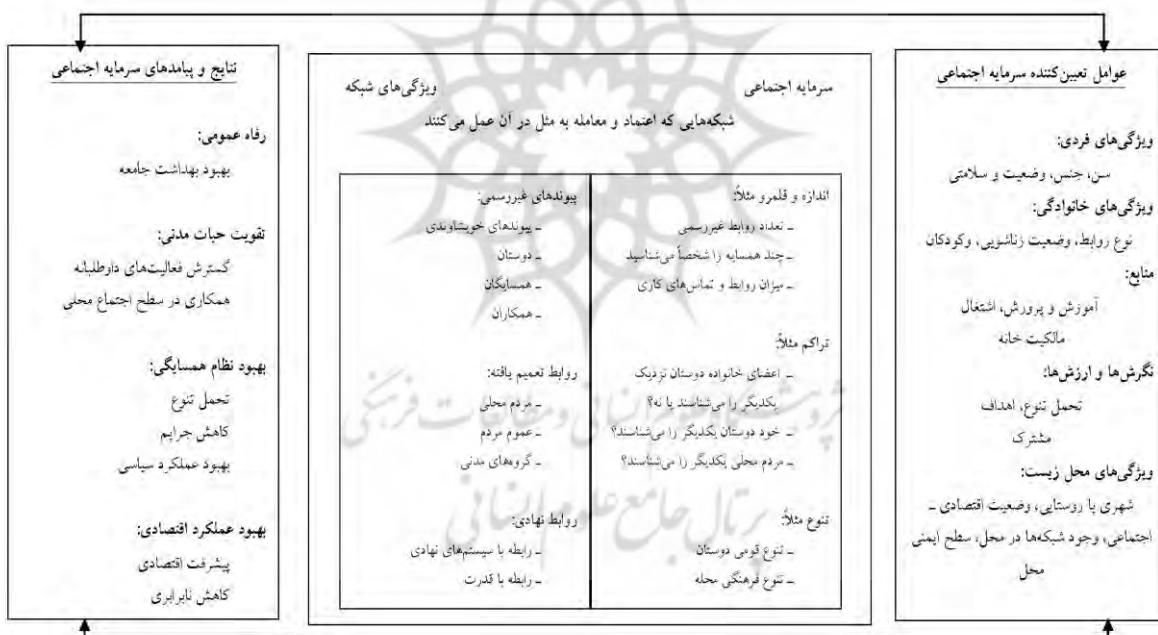 عوامل تعیین‌کننده سرمایه اجتماعی
ویژگی‌های فردی:
سن، جنس، وضعیت و سلامتی
ویژگی‌های خانوادگی:
نوع روابط، وضعیت زناشویی، وکودکان
منابع:
آموزش و پرورش، اشتغال
مالکیت خانه
نگرش‌ها و ارزش‌ها:
تحمل تنوع، اهداف
مشترک
ویژگی‌های محل زیست:
شهری یا روستایی، وضعیت اقتصادی ـ
اجتماعی، وجود شبکه‌ها در محل، سطح ایمنی
محل
سرمایه اجتماعی ویژگی‌های شبکه
شبکه‌هایی که اعتماد و معامله به مثل در آن عمل می‌کنند
اندازه و قلمرو مثلاً:
ـ تعداد روابط غیررسمی
ـ چند همسایه را شخصاً می‌شناسید
ـ میزان روابط و تماس‌های کاری
تراکم مثلاً:
ـ اعضای خانواده دوستان نزدیک
یکدیگر را می‌شناسند یا نه؟
ـ خود دوستان یکدیگر را می‌شناسند؟
ـ مردم محلی یکدیگر را می‌شناسند؟
تنوع مثلاً:
ـ تنوع قومی دوستان
ـ تنوع فرهنگی محله
پیوندهای غیررسمی:
ـ پیوندهای خویشاوندی
ـ دوستان
ـ همسایگان
ـ همکاران
روابط تعمیم یافته:
ـ مردم محلی
ـ عموم مردم
ـ گروه‌های مدنی
روابط نهادی:
ـ رابطه با سیستم‌های نهادی
ـ رابطه با قدرت
نتایج و پیامدهای سرمایه اجتماعی
رفاه عمومی:
بهبود بهداشت جامعه
تقویت حیات مدنی:
گسترش فعالیت‌های داوطلبانه
همکاری در سطح اجتماع محلی
بهبود نظام همسایگی:
تحمل تنوع
کاهش جرایم
بهبود عملکرد سیاسی
بهبود عملکرد اقتصادی:
پیشرفت اقتصادی
کاهش نابرابری
پژوهشگاه علوم انسانی و مطالعات فرهنگی
پرتال جامع علوم انسانی